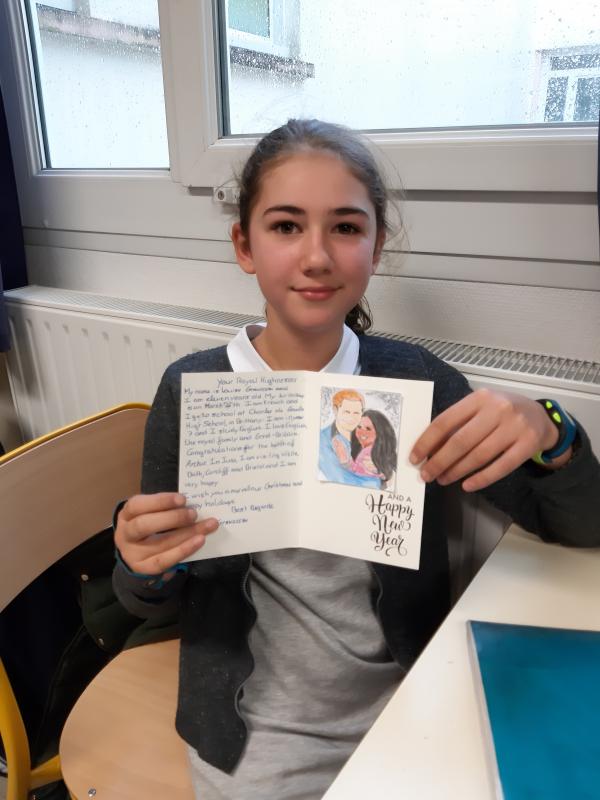 Your Royal Highnesses
My name is Louise and
I am eleven years old. My birthday
is on March. I am French and
I go to school at Charles de Gaulle
High School, in Brittany. I am in
7 and I study English. I love English,
the royal family and Great-Britain.
Congratulations for the birth of
Archie. In June, I am visiting
Bath, Cardiff and Bristol and I am
very happy.
I wish you a marvellous Christmas and
happy holidays.
Best Regards
AND A
Happy
New
Year